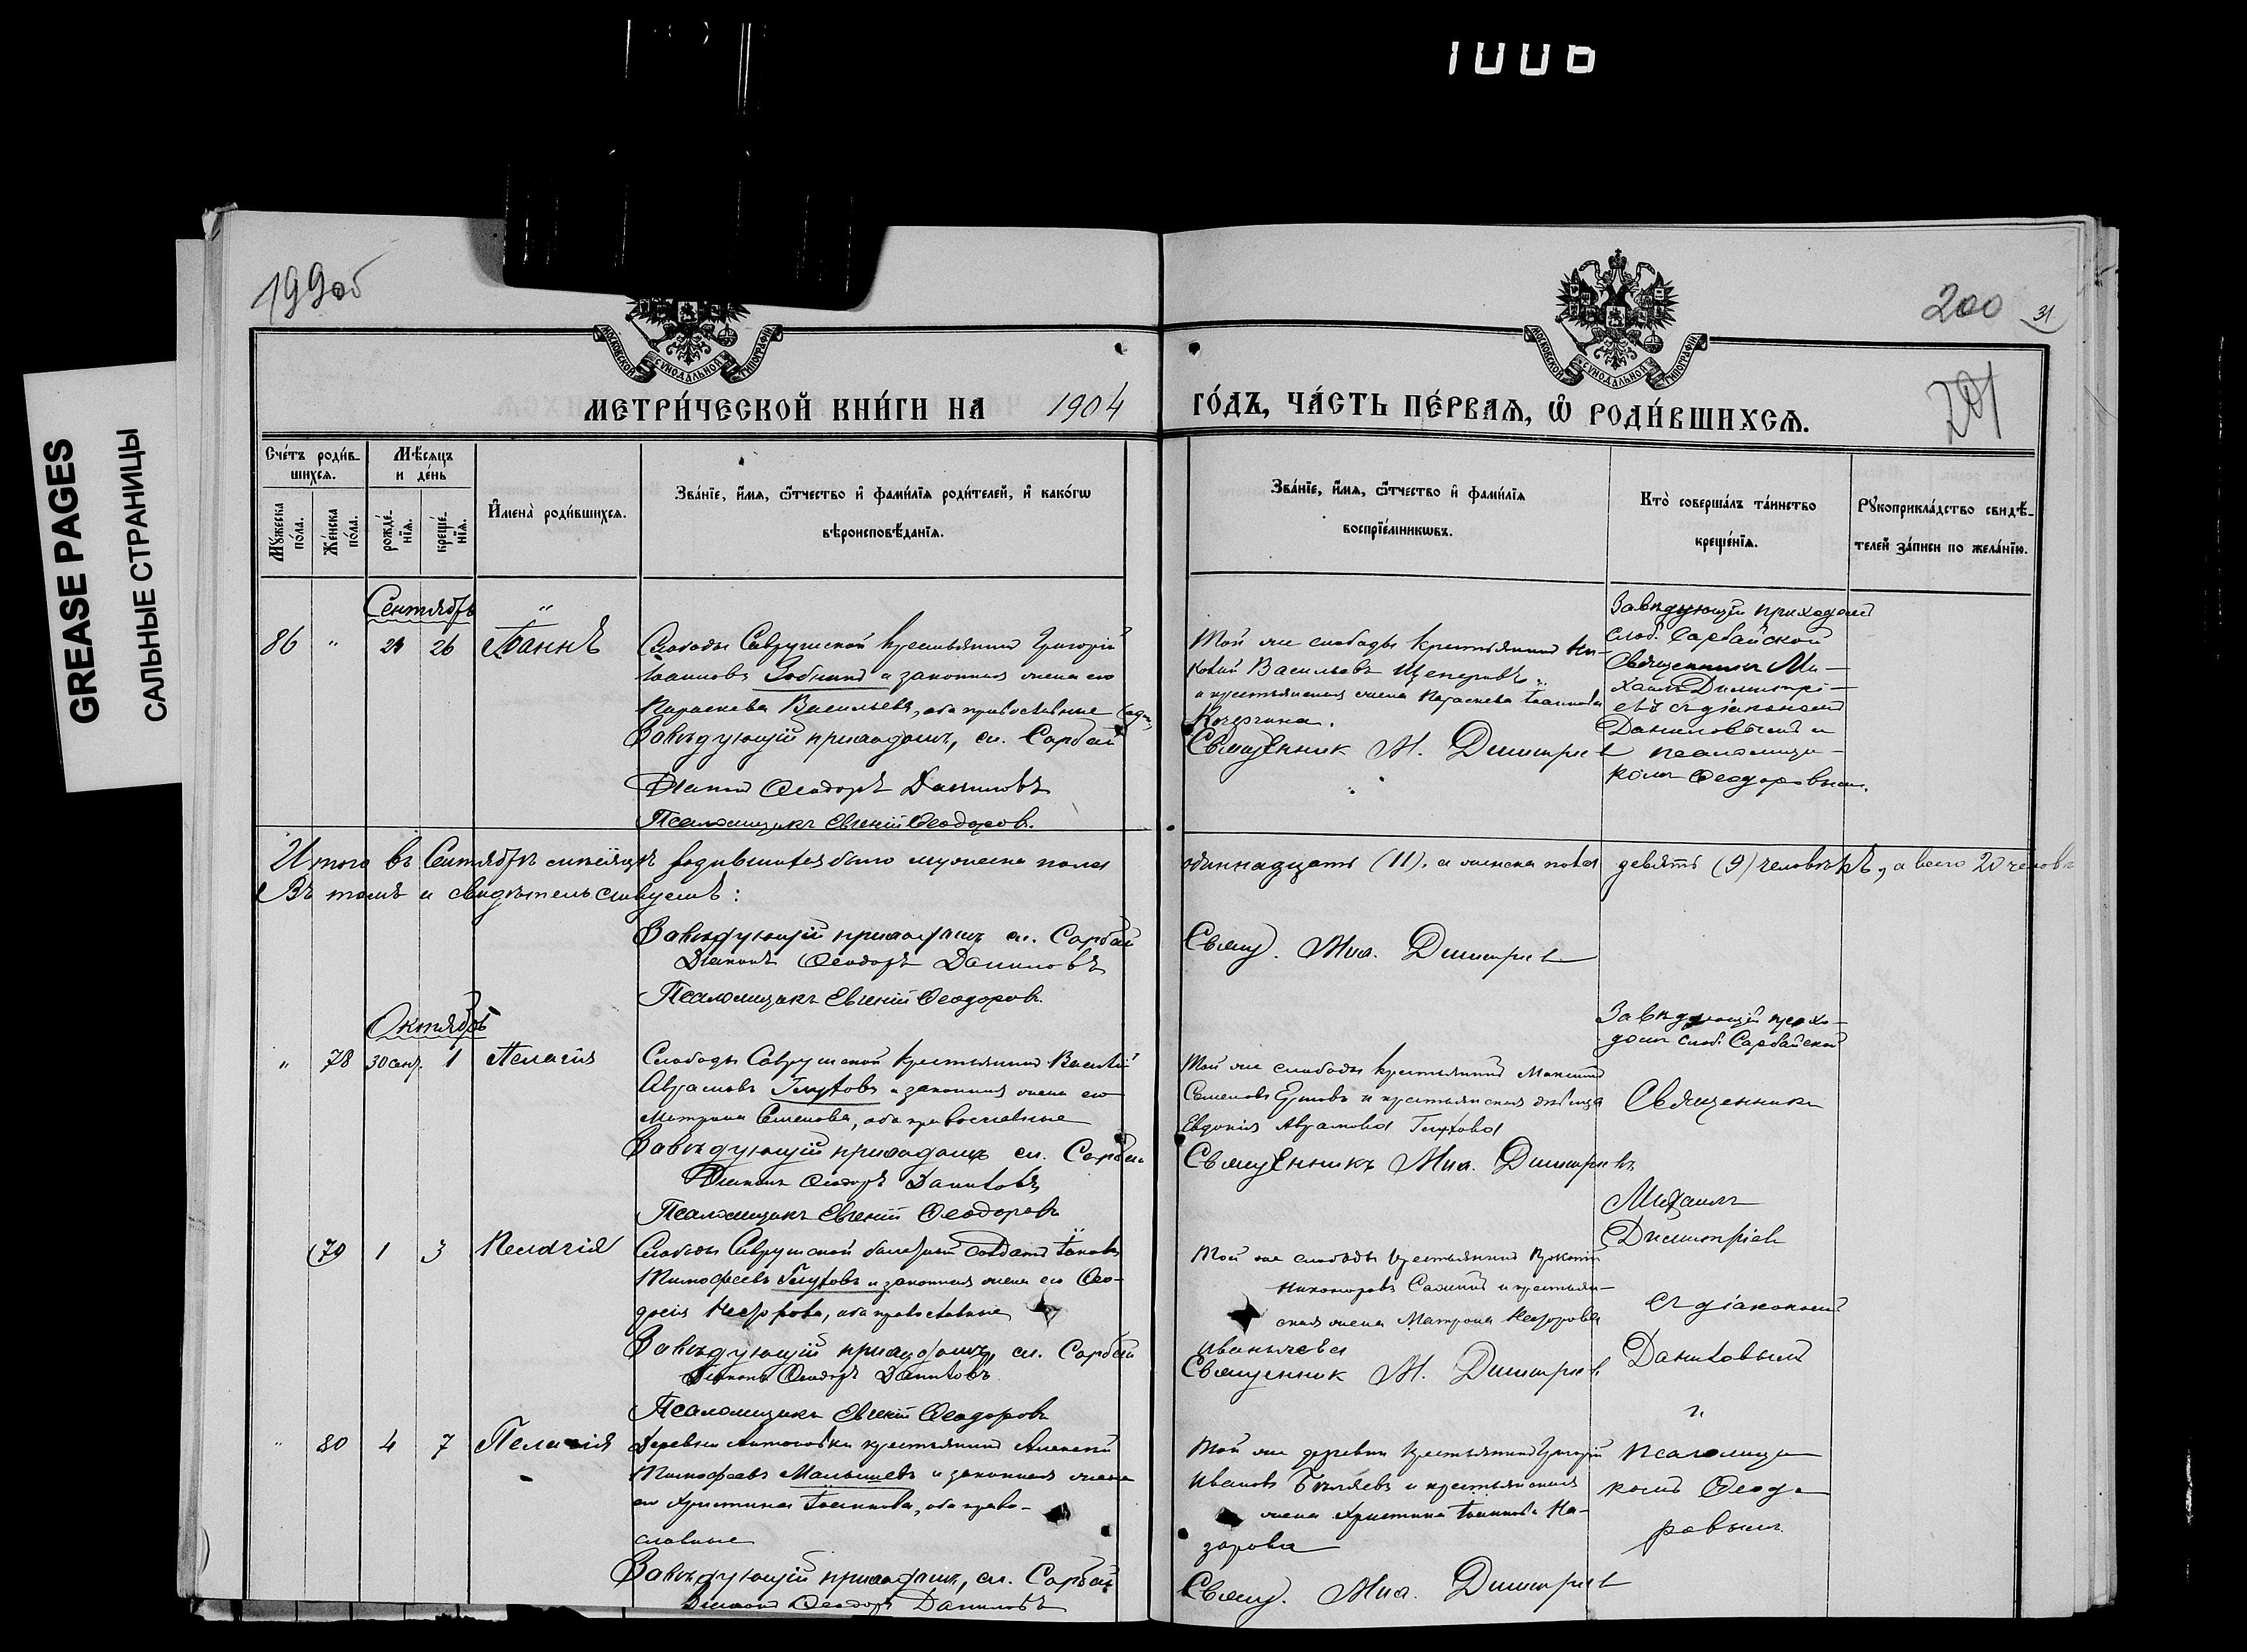 1006
GREASE PAGES
САЛЬНЫЕ СТРАНИЦЫ
199об
200
31
201
МОСКОВСКОЙ СѴНОДАЛЬНОЙ ТИПОГРАФІИ
МОСКОВСКОЙ СѴНОДАЛЬНОЙ ТИПОГРАФІИ
МЕТРИ́ЧЕСКОЙ КНИ́ГИ НА 1904 ГО́ДЪ, ЧА́СТЬ ПЕ́РВАЯ, Ѡ РОДИ́ВШИХСЯ.
Сче́тъ роди́в-
шихся.
Мѣ́сяцъ
и де́нь
Мꙋ́жеска
по́ла.
Же́нска
по́ла.
рожде́-
нїя.
креще́-
нїя.
И҆мена̀ роди́вшихся.
Зва́нїе, и҆́мя, ѻ҆́тчество и҆ фами́лїя роди́телей, и҆ како́гѡ
вѣроисповѣ́данїя.
Зва́нїе, и҆́мя, ѻ҆́тчество и҆ фами́лїя
воспрїе́мникѡвъ.
Кто̀ соверша́лъ та́инство
креще́нїя.
Рꙋкоприкла́дство свидѣ́-
телей за́писи по жела́нїю.
Сентябрь
86 " 24 26 Іоаннъ
Слободы Саврушской крестьянинъ Григорій
Іоанновъ Зобнинъ и законная жена его
Параскева Васильева, оба православные
Завѣдующій приходомъ, сл. Сарбай
Діаконъ Ѳеодоръ Даниловъ
Псаломщикъ Евгеній Ѳеодоровъ.
Той же слободы крестьянинъ Ни-
Васильевъ
и крестьянская жена Параскева Іоаннова
Кочергина.
Священник М. Димитриев
Завѣдующій приходомъ
слоб. Сарбайской
Священникъ Ми-
хаилъ Димитрі-
евъ съ діакономъ
Даниловымъ и
псаломщи-
комъ Ѳеодоровымъ.
Итого въ Сентябрѣ мѣсяцѣ родившихся было мужеска пола одиннадцать (11), а женска пола девять (9) человѣкъ, а всего 20 челов.
Въ томъ и свидѣтельствуемъ:
Завѣдующій приходомъ сл. Сарбай
Діаконъ Ѳеодоръ Даниловъ
Псаломщикъ Евгеній Ѳеодоровъ.
Свящ. Мих. Димитриев
Октябрь
" 78 30 сен. 1 Пелагія
Слободы Саврушской крестьянинъ Василій
Аврамовъ Глуховъ и законная жена его
Матрона Семенова, оба православные
Завѣдующій приходомъ сл. Сарбай
Діаконъ Ѳеодоръ Даниловъ
Псаломщикъ Евгеній Ѳеодоровъ
Той же слободы крестьянинъ Максимъ
Семеновъ и крестьянская дѣвица
Евдокія Аврамова Глухова
Священникъ Мих. Димитриевъ
Завѣдующій прихо-
домъ слоб. Сарбайской
Священникъ
Михаилъ
Димитріевъ
съ діакономъ
Даниловымъ
и
псаломщи-
комъ Ѳеодо-
ровымъ.
79 1 3 Пелагія
Слободы Саврушской солдатъ Іаковъ
Тимофеевъ Глуховъ и законная жена его Ѳео-
досія оба православные
Завѣдующій приходомъ, сл. Сарбай
Діаконъ Ѳеодоръ Даниловъ
Псаломщикъ Евгеній Ѳеодоровъ
Той же слободы крестьянинъ
Никаноровъ и крестьян-
ская жена Матрона
Иванычева
Священник М. Димитриев
" 80 4 7 Пелагія
Деревни крестьянинъ Алексей
Тимофеевъ Малышевъ и законная жена
его Христина Іоаннова, оба право-
славные
Завѣдующій приходомъ, сл. Сарбай
Діаконъ Ѳеодоръ Даниловъ
Той же деревни крестьянинъ Григорій
Ивановъ Бѣляевъ и крестьянская
жена Христина Іоаннова На-
зарова
Свящ. Мих. Димитриев